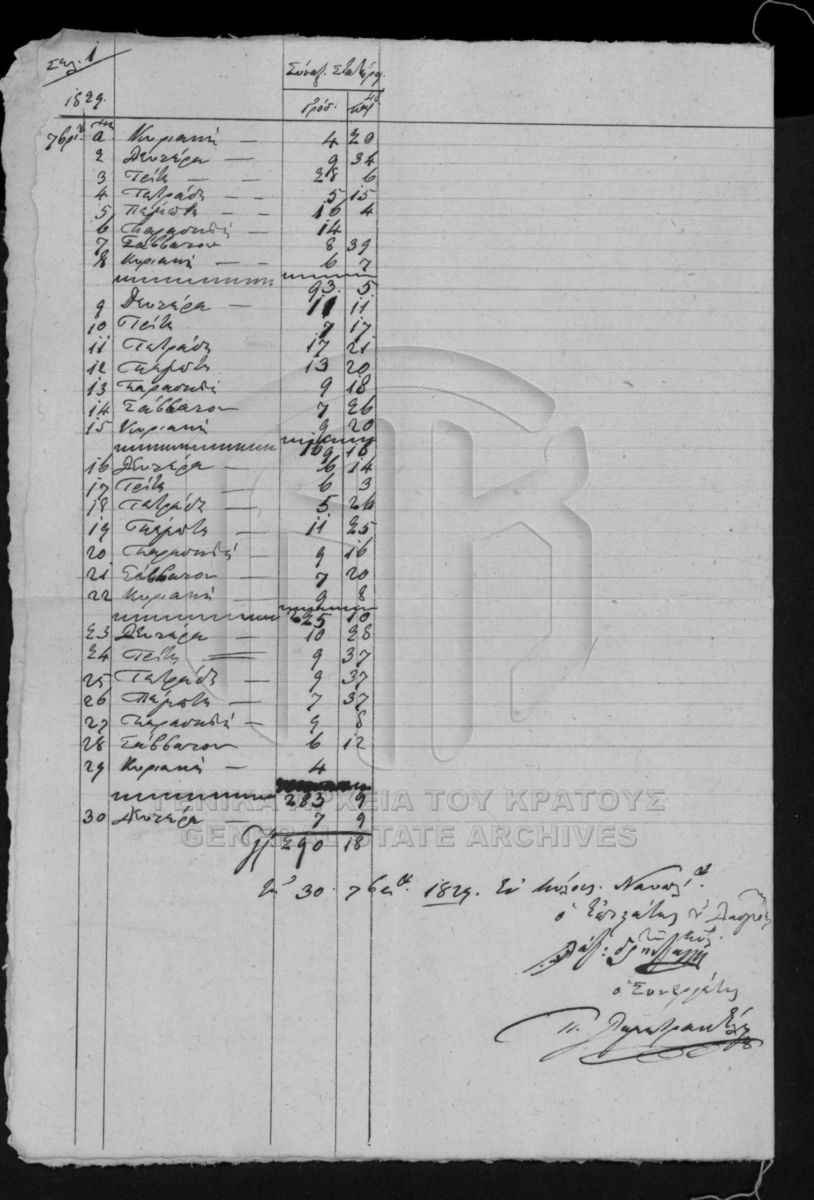 Σελ. 1
Σύναξ. Στατέρα.
1829.
Γρόσ. παρ.
7βρίου α Κυριακή — 4 20
2 Δευτέρα — 9 34
3 Τρίτη — - 28 6
4 Τετράδη - - 5 15
5 Πέμπτη - - 16 4
6 Παρασκευή - 14
7 Σάββατον 8 39
8 Κυριακή — - 6 7
93. 5.
9 Δευτέρα — 11 11
10 Τρίτη 7 17
11 Τετράδη 17 21
12 Πέμπτη 13 20
13 Παρασκευή 9 18
14 Σάββατον 7 26
15 Κυριακή 9 20
169 18
16 Δευτέρα — 6 14
17 Τρίτη — 6 3
18 Τετράδη — 5 26
19 Πέμπτη — 11 25
20 Παρασκευή — 9 16
21 Σάββατον — 7 20
22 Κυριακή — 9 8
225 10
23 Δευτέρα — 10 28
24 Τρίτη 9 37
25 Τετράδη — 9 37
26 Πέμπτη — 7 37
27 Παρασκευή — 9 8
28 Σάββατον 6 12
29 Κυριακή — 4
283 9
30 Δευτέρα — 7 9
290 18
30 7βρίου 1829. Ναυπλ
ὁ Συνεργάτης
Π.
ΓΕΝΙΚΑ ΑΡΧΕΙΑ ΤΟΥ ΚΡΑΤΟΥΣ
GENERAL STATE ARCHIVES